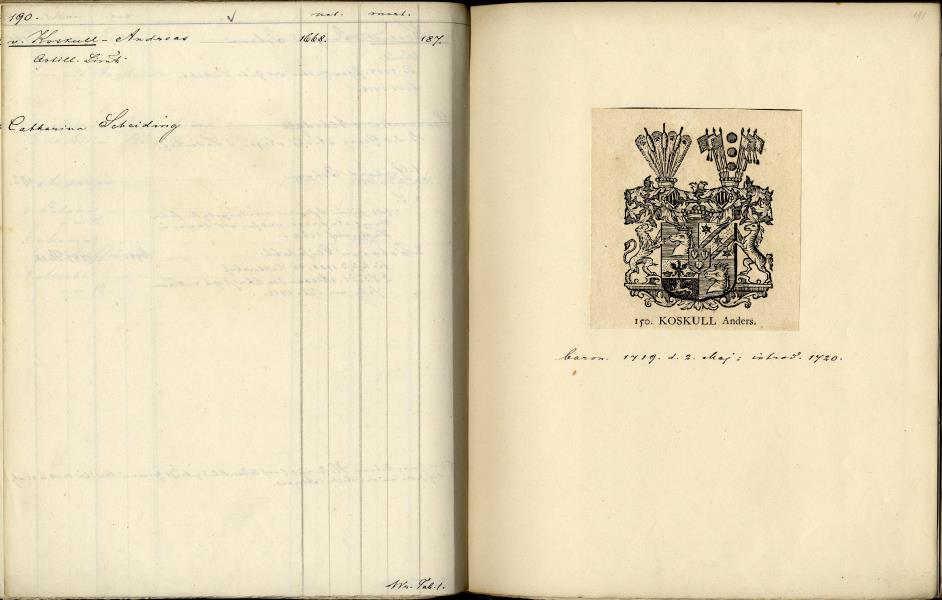 190.
nat. mort.
v. Koskull - Andreas 1668. 187.
Artill. Lieut.
Catharina Scheiding
Wr. Tab. 1.
191
150. KOSKULL Anders.
baron. 1719. d. 2. Maj; introd. 1720.